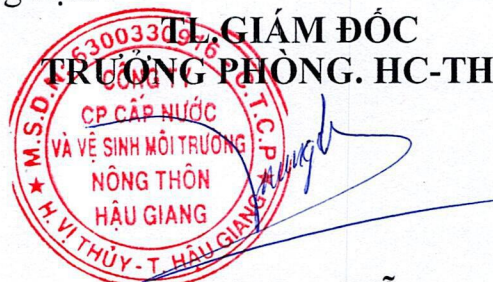 TL.GIÁM ĐỐC
TRƯỞNG PHÒNG. HC-TH
M.S.D.N: 6300330916 - C.T.C.P
CÔNG TY
CP CẤP NƯỚC
VÀ VỆ SINH MÔI TRƯỜNG
NÔNG THÔN
HẬU GIANG
H. VỊ THỦY - T. HẬU GIANG